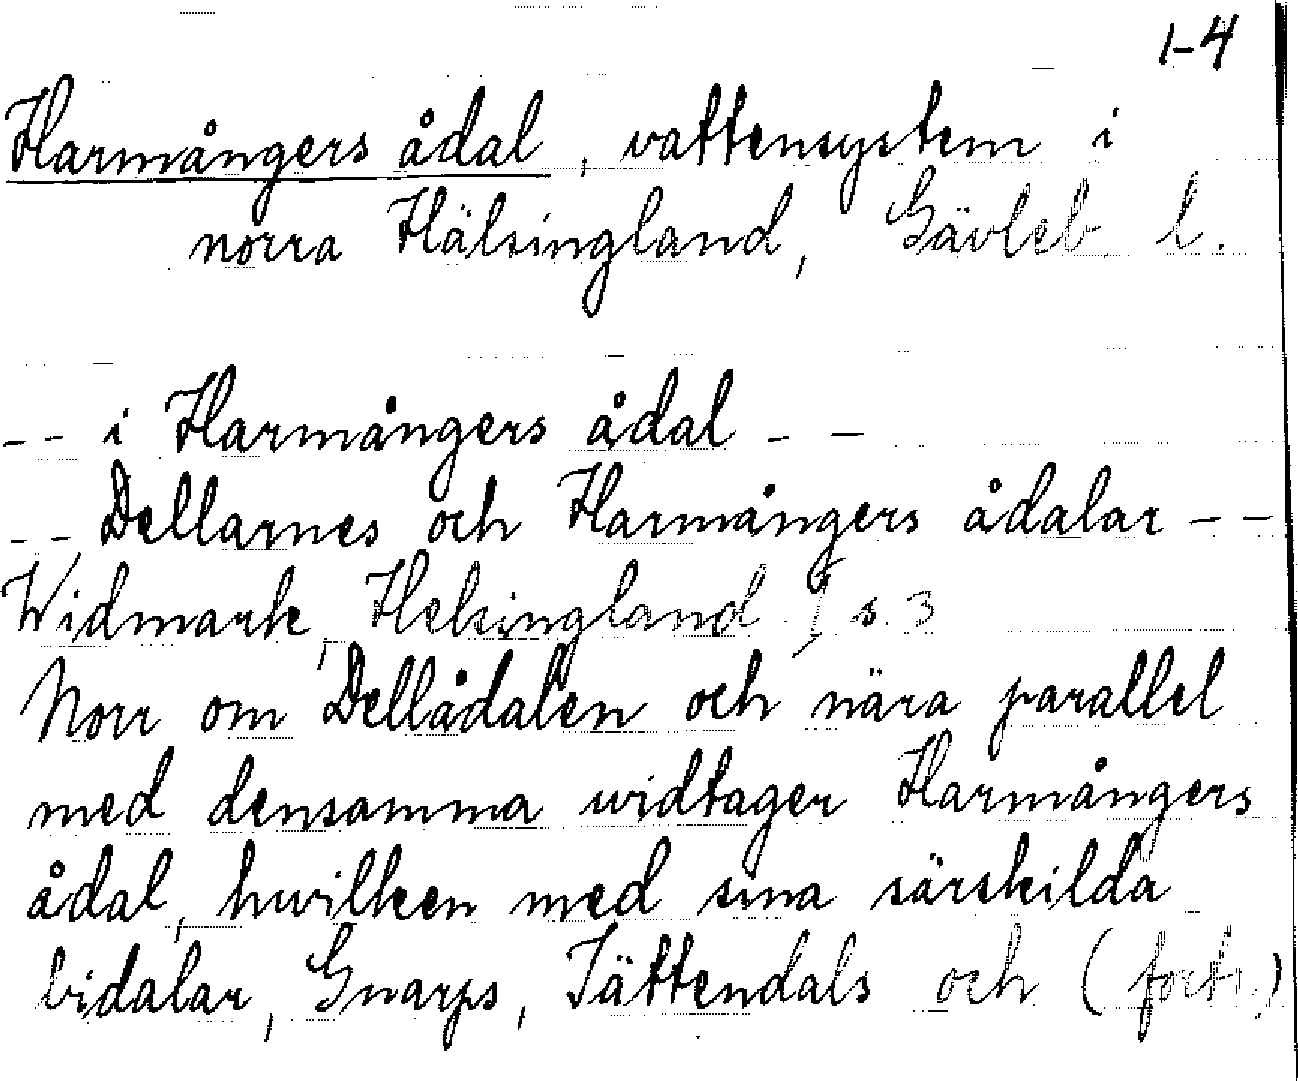 1-4
Harmångers ådal, vattensystem i
norra Hälsingland, Gävleb. l.
-- i Harmångers ådal --
-- Dellarnes och Harmångers ådalar --
Widmark, Helsingland I s. 3
Norr om Dellådalen och nära parallel
med densamma widtager Harmångers
ådal, hwilken med sina särskilda
bidalar, Gnarps, Jättendals och (forts.)